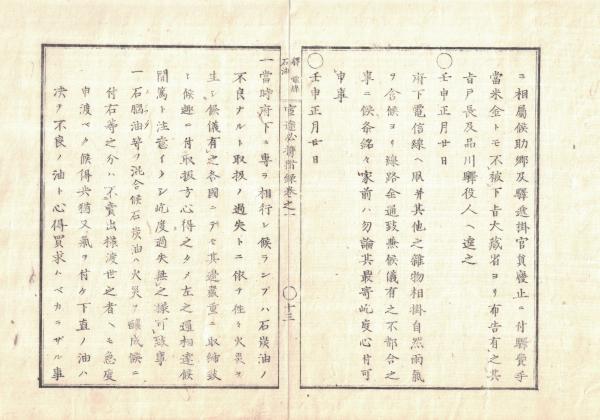 ニ相屬候助郷及驛遞掛官員廢止ニ付驛費手
當米金トモ不被下旨大藏省ヨリ布告有之其
旨戸長及品川驛役人ヘ達之
〇壬申正月廿日
府下電信線ヘ凧并其他之雜物相掛自然雨氣
ヲ含候ヨリ線路全通致兼候儀有之不都合之
事ニ候条銘々家前ハ勿論其最寄屹度心付可
申事
〇壬申正月廿日
驛 電線
石油
官達必携當録卷之一
〇十三
一當時府下ニ專ラ相行レ候ランプハ石炭油ノ
不良ナルト取扱ノ過失トニ依テ往々火災ヲ
生シ候儀有之各國ニテモ其邊嚴重ニ取締致
シ候趣ニ付取扱方心得之タメ左之通相達候
間篤ト注意イタシ屹度過失無之樣可致事
一石腦油等ヲ混合候石炭油ハ火災ヲ釀成候ニ
付右等之分ハ不賣出樣渡世之者ヘモ急度
申渡ベク候得共猶又氣ヲ付ケ下直ノ油ハ
决テ不良ノ油ト心得買求ムベカラザル事